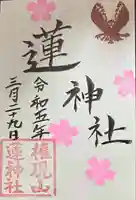 蓮神社
令和五年
三月二十九日
蓮神社